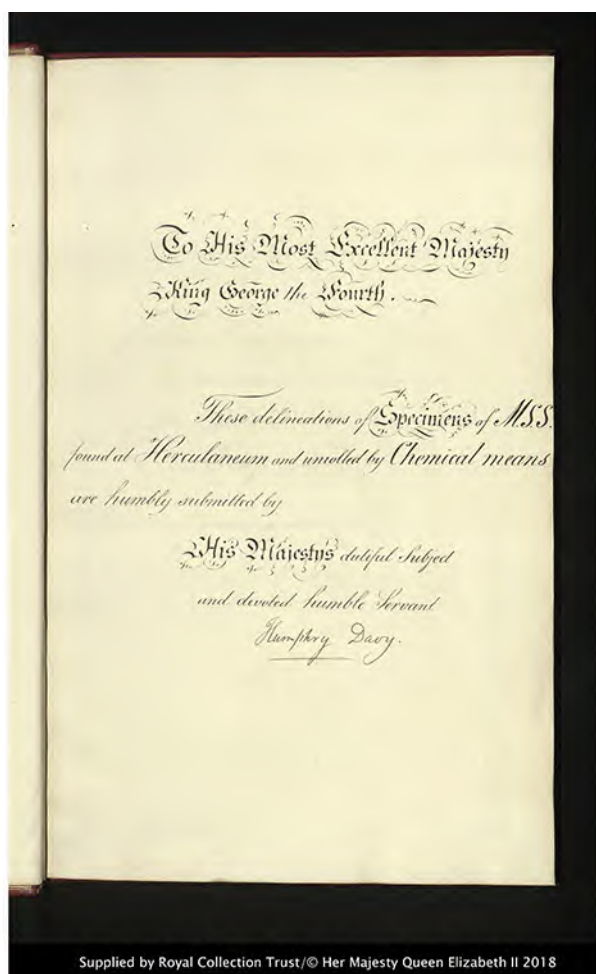 To His Most Excellent Majesty
King George the Fourth.
These delineations of Specimens of M.S.S.
found at Herculaneum and unrolled by Chemical means
are humbly submitted by
His Majesty's dutiful Subject
and devoted humble Servant
Humphry Davy.
Supplied by Royal Collection Trust/© Her Majesty Queen Elizabeth II 2018